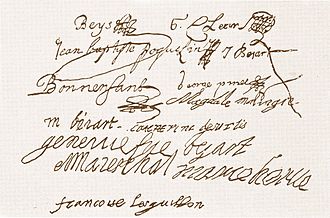 Beys G. Clerin
Jean Baptiste Poquelin J Bejart
Bonnenfant George pinel
Magdale malingre
m beiart catherine desurlis
geneviefve bejart
AMareschal
francoise lesguillon